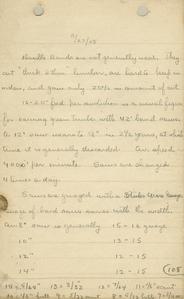 9/27/05
Double Bands are not generally used. They
cut "thick & thin" lumber, are hard to keep in
order, and gain only 20% in amount of cut.
12-20" fed per revolution is a usual figure
for sawing green timber with 42' band saws.
A 12" saw wears to 8" in 2½ years, at which
time it is generally discarded. Av. speed
9000' per minute. Saws are changed
4 times a day.
Saws are gauged with a Stubs Wire Gauge
Gauge of band saws varies with the width.
An 8" saw is generally 15-16 gauge
10" 13-15
12" 13-15
14" 12-15
108